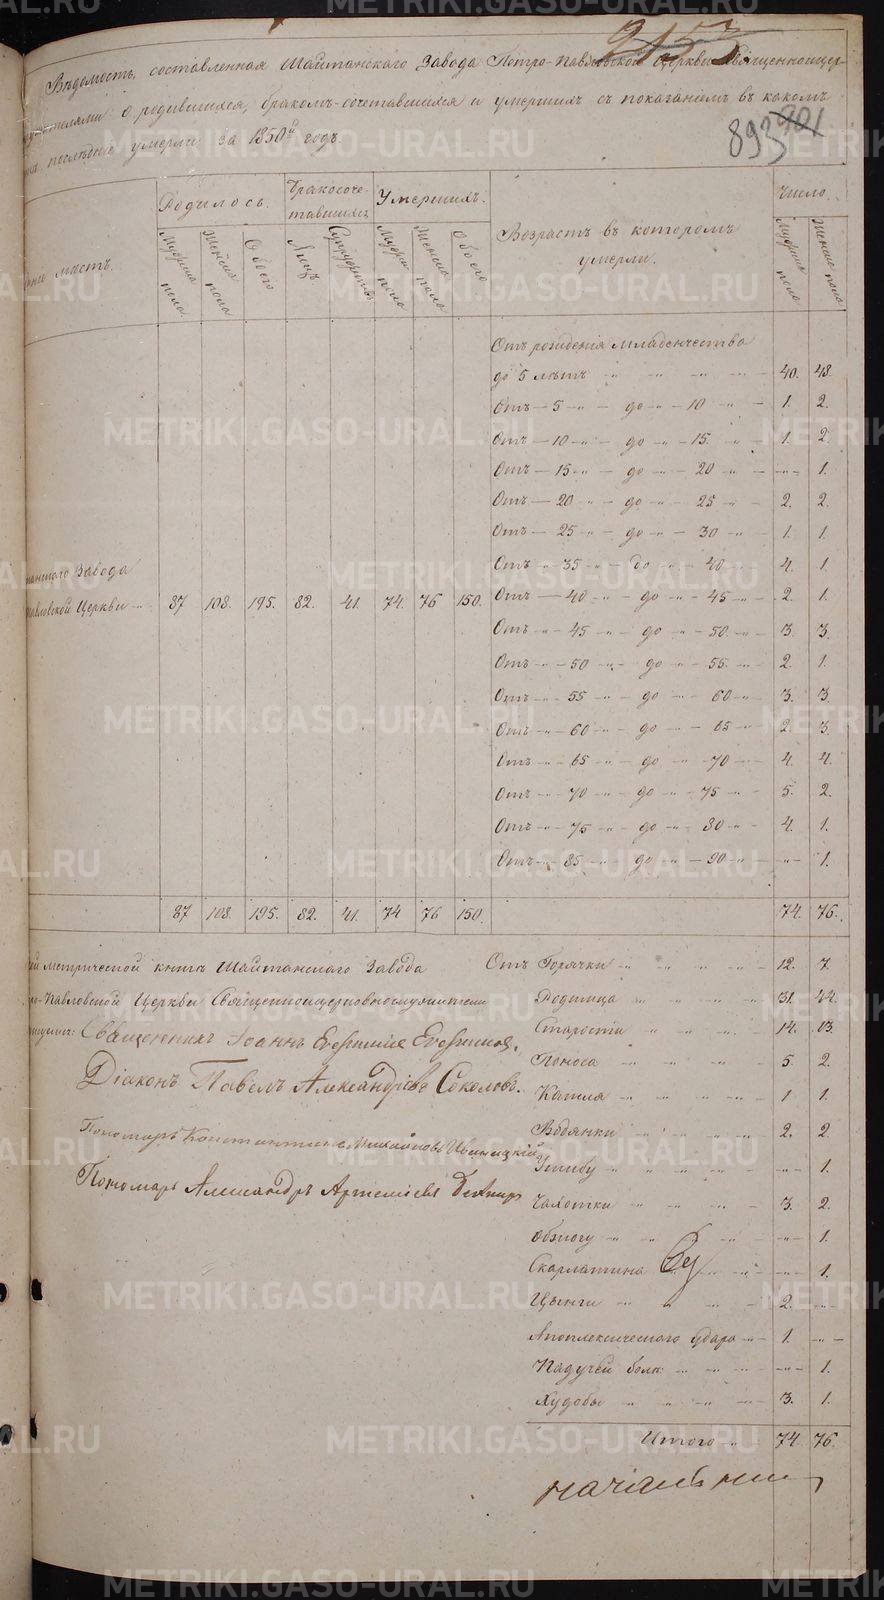 2153
Вѣдомость, составленная Шайтанскаго Завода Петро-Павловской Церкви Священноцер-
о родившихся, бракомъ-сочетавшихся и умершихъ съ показаніемъ въ какомъ
послѣдніе умерли за 1850й годъ
893 901
мѣстъ.
Родилось.
Бракосоче-
тавшихся
Умершихъ.
Возрастъ въ которомъ
умерли.
Число.
Мужеска пола
Женска пола
Обоего
Лицъ
Супружествъ
Мужеска пола
Женска пола
Обоего
Мужеска пола
Женска пола
Отъ рожденія Младенчества
до 5 лѣтъ 40. 48.
Отъ 5 до 10 1. 2.
Отъ 10 до 15 1. 2.
Отъ 15 до 20 1.
Отъ 20 до 25 2. 2.
Отъ 25 до 30 1. 1.
Отъ 35 до 40 4. 1.
Отъ 40 до 45 2. 1.
Отъ 45 до 50 3. 3.
Отъ 50 до 55 2. 1.
Отъ 55 до 60 3. 3.
Отъ 60 до 65 2. 3.
Отъ 65 до 70 4. 4.
Отъ 70 до 75 5. 2.
Отъ 75 до 80 4. 1.
Отъ 85 до 90 1.
Завода
Церкви 87 108. 195. 82. 41. 74. 76 150.
87 108. 195. 82. 41. 74 76 150. 74. 76.
метрической книгѣ Шайтанскаго Завода
Павловской Церкви Священноцерковнослужители
Священникъ Іоаннъ
Діаконъ Павелъ Александровъ Соколовъ.
Пономарь
Пономарь Александръ
Отъ Горячки 12. 7
Родимца 31. 44.
Старости 14. 13.
Поноса 5 2.
Кашля 1 1.
Водянки 2. 2
1.
Чахотки 3. 2.
Обжогу 1.
Скарлатина 1.
Цынги 2.
Апоплексическаго удара 1.
Падучей болѣ: 1.
Худобы 3. 1.
Итого 74. 76.
METRIKI.GASO-URAL.RU